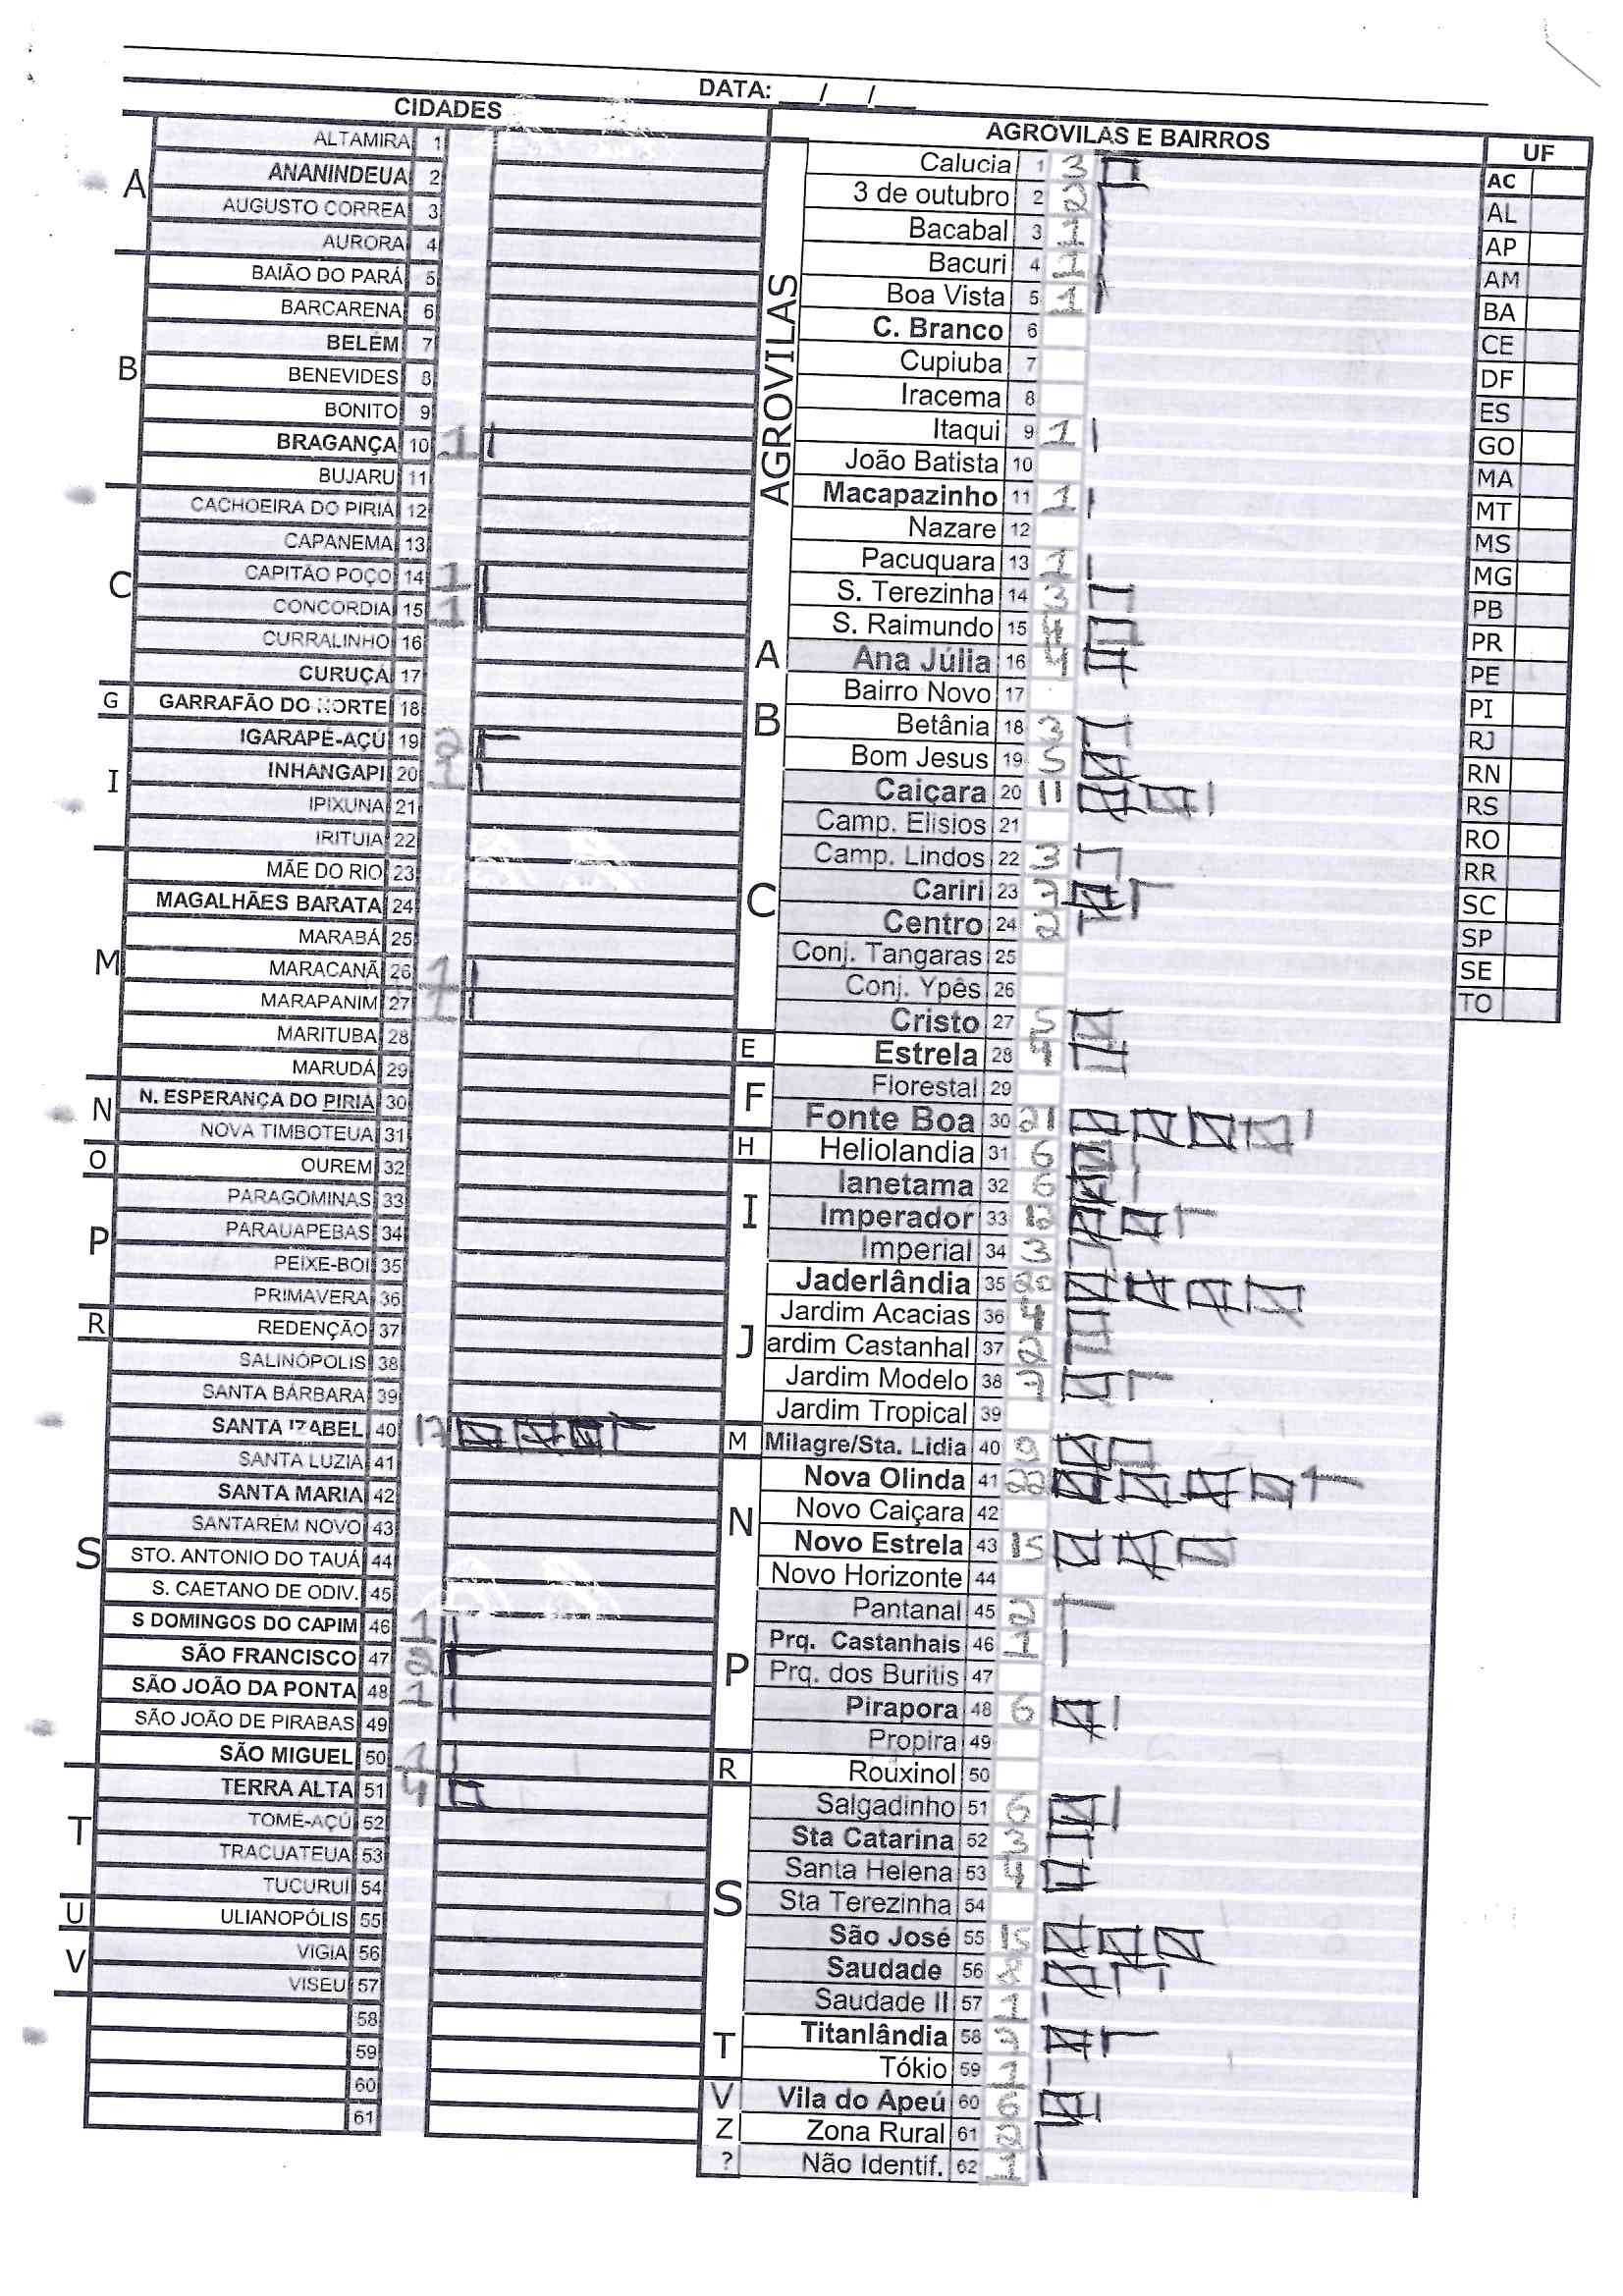 DATA: __/__/__
CIDADES
A
ALTAMIRA 1
ANANINDEUA 2
AUGUSTO CORREA 3
AURORA 4
B
BAIÃO DO PARÁ 5
BARCARENA 6
BELÉM 7
BENEVIDES 8
BONITO 9
BRAGANÇA 10 1
BUJARU 11
C
CACHOEIRA DO PIRIÁ 12
CAPANEMA 13
CAPITÃO POÇO 14 1
CONCORDIA 15 1
CURRALINHO 16
CURUÇÁ 17
G
GARRAFÃO DO NORTE 18
I
IGARAPÉ-AÇÚ 19 2
INHANGAPI 20 1
IPIXUNA 21
IRITUIA 22
M
MÃE DO RIO 23
MAGALHÃES BARATA 24
MARABÁ 25
MARACANÃ 26 1
MARAPANIM 27 1
MARITUBA 28
MARUDÁ 29
N
N. ESPERANÇA DO PIRIA 30
NOVA TIMBOTEUA 31
O
OUREM 32
P
PARAGOMINAS 33
PARAUAPEBAS 34
PEIXE-BOI 35
PRIMAVERA 36
R
REDENÇÃO 37
S
SALINÓPOLIS 38
SANTA BÁRBARA 39
SANTA IZABEL 40 17
SANTA LUZIA 41
SANTA MARIA 42
SANTARÉM NOVO 43
STO. ANTONIO DO TAUÁ 44
S. CAETANO DE ODIV. 45
S DOMINGOS DO CAPIM 46 1
SÃO FRANCISCO 47 2
SÃO JOÃO DA PONTA 48 1
SÃO JOÃO DE PIRABAS 49
SÃO MIGUEL 50 1
T
TERRA ALTA 51 4
TOMÉ-AÇÚ 52
TRACUATEUA 53
TUCURUI 54
U
ULIANOPÓLIS 55
V
VIGIA 56
VISEU 57
58
59
60
61
AGROVILAS E BAIRROS
AGROVILAS
Calucia 1 3
3 de outubro 2 2
Bacabal 3 1
Bacuri 4 1
Boa Vista 5 1
C. Branco 6
Cupiuba 7
Iracema 8
Itaqui 9 1
João Batista 10
Macapazinho 11 1
Nazare 12
Pacuquara 13 1
S. Terezinha 14 3
S. Raimundo 15 4
A
Ana Júlia 16 4
B
Bairro Novo 17
Betânia 18 3
Bom Jesus 19 5
C
Caiçara 20 11
Camp. Elisios 21
Camp. Lindos 22 3
Cariri 23 7
Centro 24 2
Conj. Tangaras 25
Conj. Ypês 26
Cristo 27 5
E
Estrela 28 4
F
Florestal 29
Fonte Boa 30 21
H
Heliolandia 31 6
I
Ianetama 32 6
Imperador 33 12
Imperial 34 3
J
Jaderlândia 35 20
Jardim Acacias 36 4
ardim Castanhal 37 2
Jardim Modelo 38 7
Jardim Tropical 39
M
Milagre/Sta. Lidia 40 9
N
Nova Olinda 41 22
Novo Caiçara 42
Novo Estrela 43 15
Novo Horizonte 44
P
Pantanal 45 2
Prq. Castanhais 46 1
Prq. dos Buritis 47
Pirapora 48 6
Propira 49
R
Rouxinol 50
S
Salgadinho 51 6
Sta Catarina 52 3
Santa Helena 53 4
Sta Terezinha 54
São José 55 15
Saudade 56
Saudade II 57 1
T
Titanlândia 58 7
Tókio 59 1
V
Vila do Apeú 60 6
Z
Zona Rural 61
?
Não Identif. 62 1
UF
AC
AL
AP
AM
BA
CE
DF
ES
GO
MA
MT
MS
MG
PB
PR
PE
PI
RJ
RN
RS
RO
RR
SC
SP
SE
TO